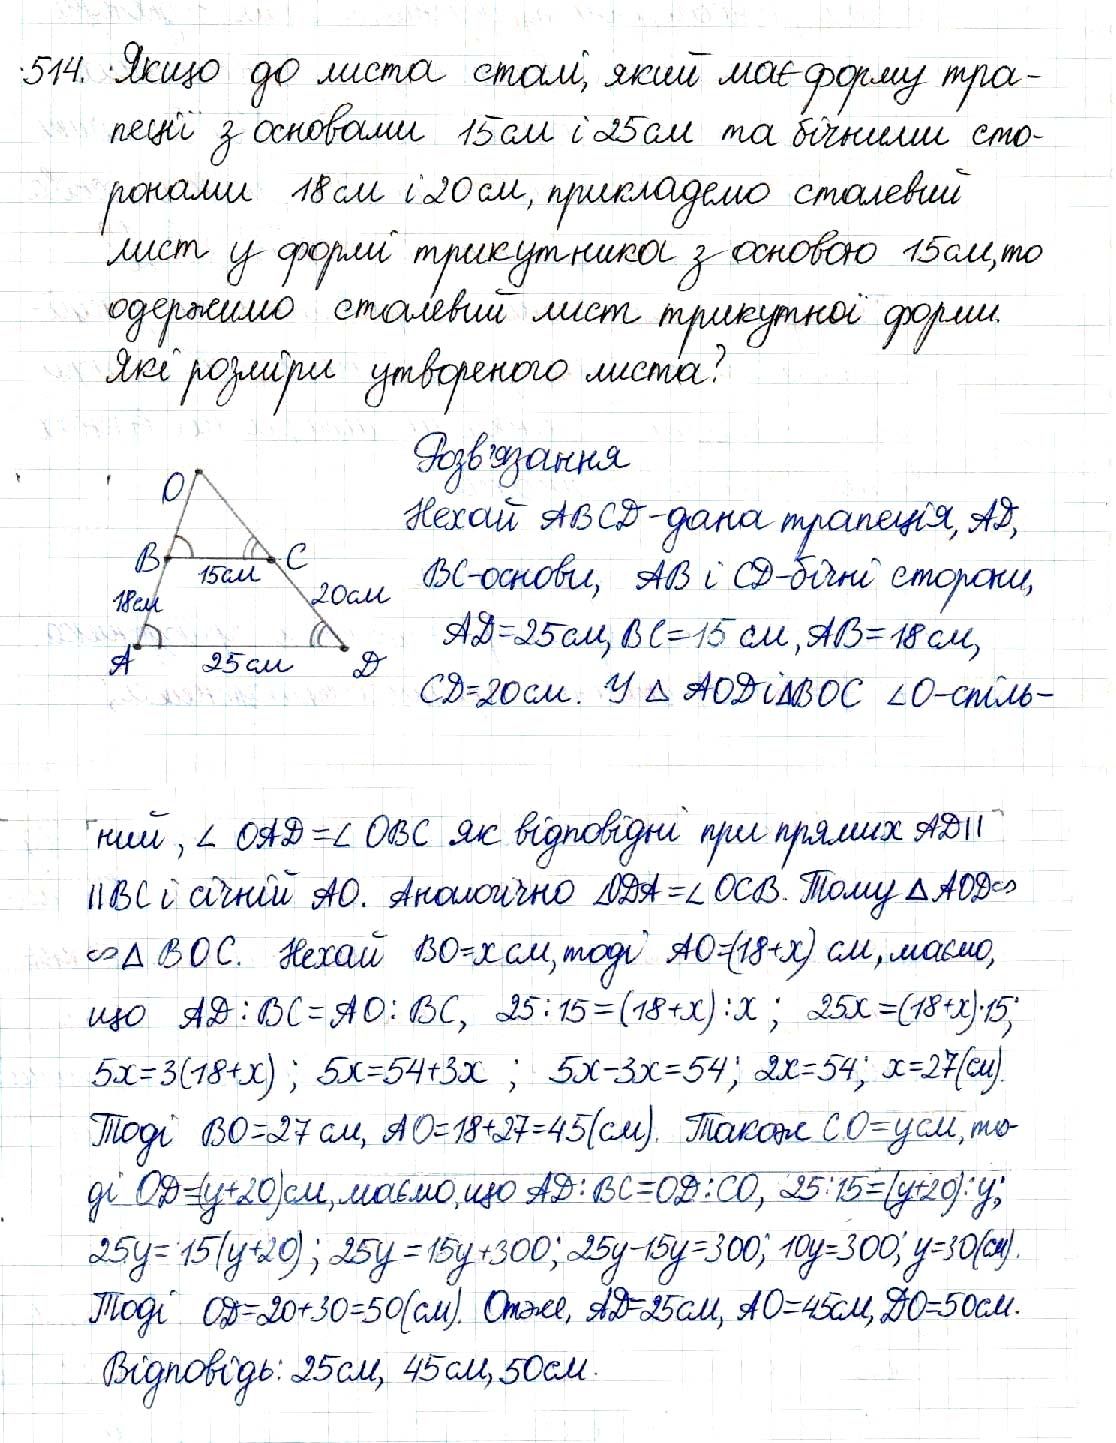 514. Якщо до листа сталі, який має форму тра-
пеції з основами 15см і 25см та бічними сто-
ронами 18см і 20см, прикладемо сталевий
лист у формі трикутника з основою 15см, то
одержимо сталевий лист трикутної форми.
Які розміри утвореного листа?
Розв'язання
O
B
C
15см
18см
20см
A
25см
D
Нехай ABCD-дана трапеція, AD,
BC-основи, AB і CD-бічні сторони,
AD=25см, BC=15 см, AB=18см,
CD=20см. У △ AOD і △BOC ∠O-спіль-
ний, ∠ OAD=∠ OBC як відповідні при прямих AD||
||BC і січній AO. Аналогічно ∠ODA=∠ OCB. Тому △ AOD∽
∽△ BOC. Нехай BO=x см, тоді AO=(18+x) см, маємо,
що AD:BC=AO:BC, 25:15=(18+x):x; 25x=(18+x)·15;
5x=3(18+x); 5x=54+3x; 5x-3x=54; 2x=54; x=27(см).
Тоді BO=27см, AO=18+27=45(см). Також CO=y см, то-
ді OD=(y+20)см, маємо, що AD:BC=OD:CO, 25:15=(y+20):y;
25y=15(y+20); 25y=15y+300; 25y-15y=300; 10y=300; y=30(см).
Тоді OD=20+30=50(см). Отже, AD=25см, AO=45см, DO=50см.
Відповідь: 25см, 45см, 50см.